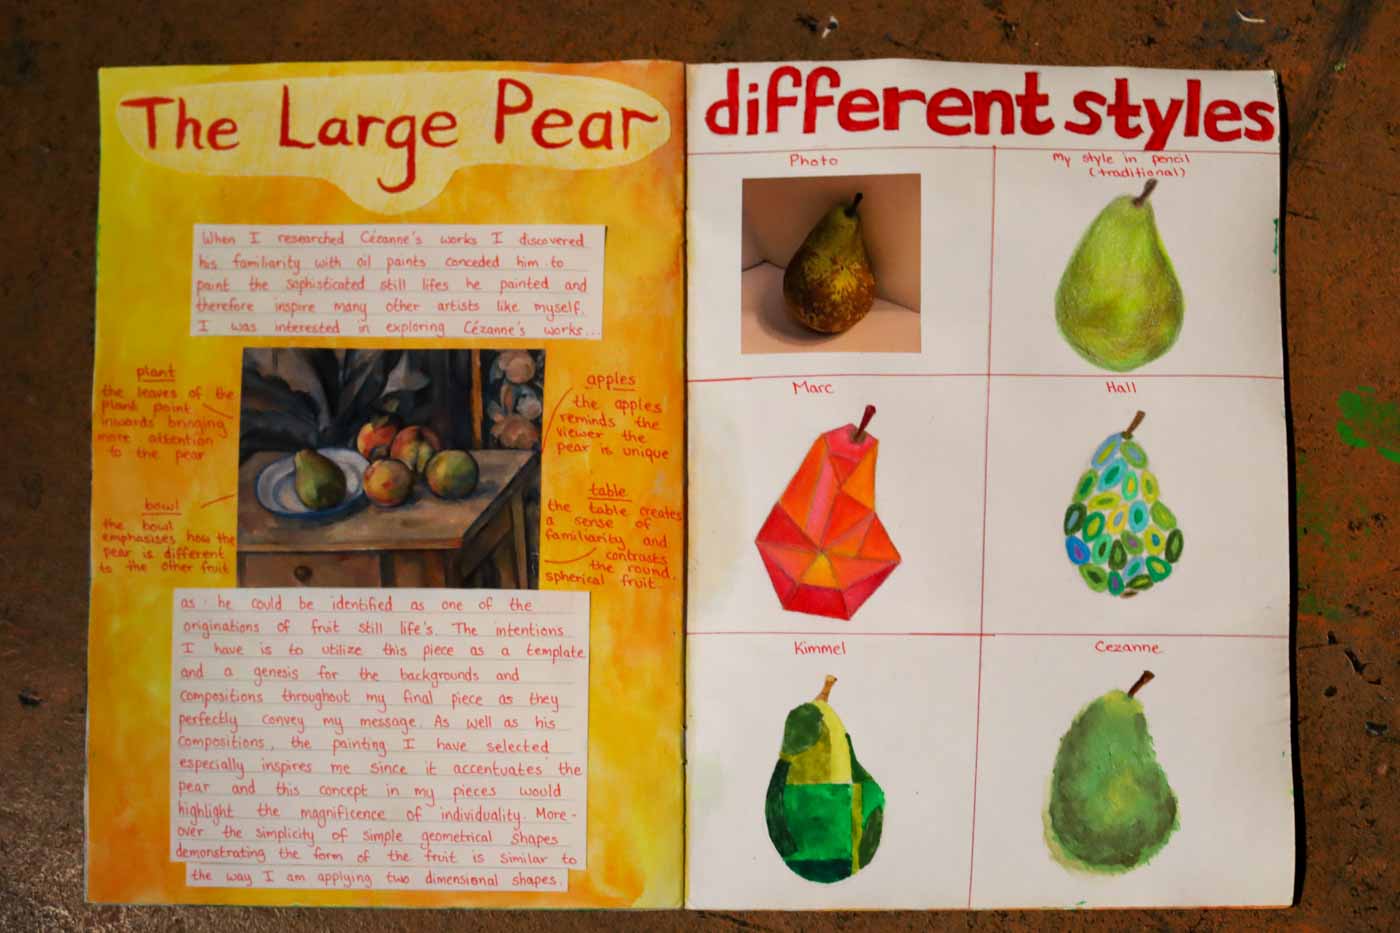 The Large Pear
When I researched Cézanne's works I discovered
his familiarity with oil paints conceded him to
paint the sophisticated still lifes he painted and
therefore inspire many other artists like myself.
I was interested in exploring Cézanne's works...
plant
the leaves of the
plant point
inwards bringing
more attention
to the pear
bowl
the bowl
emphasises how the
pear is different
to the other fruit
apples
the apples
reminds the
viewer the
pear is unique
table
the table creates
a sense of
familiarity and
contrasts
the round,
spherical fruit.
as he could be identified as one of the
originations of fruit still life's. The intentions
I have is to utilize this piece as a template
and a genesis for the backgrounds and
compositions throughout my final piece as they
perfectly convey my message. As well as his
compositions, the painting I have selected
especially inspires me since it accentuates the
pear and this concept in my pieces would
highlight the magnificence of individuality. More-
over the simplicity of simple geometrical shapes
demonstrating the form of the fruit is similar to
the way I am applying two dimensional shapes.
different styles
Photo
My style in pencil
(traditional)
Marc
Hall
Kimmel
Cezanne